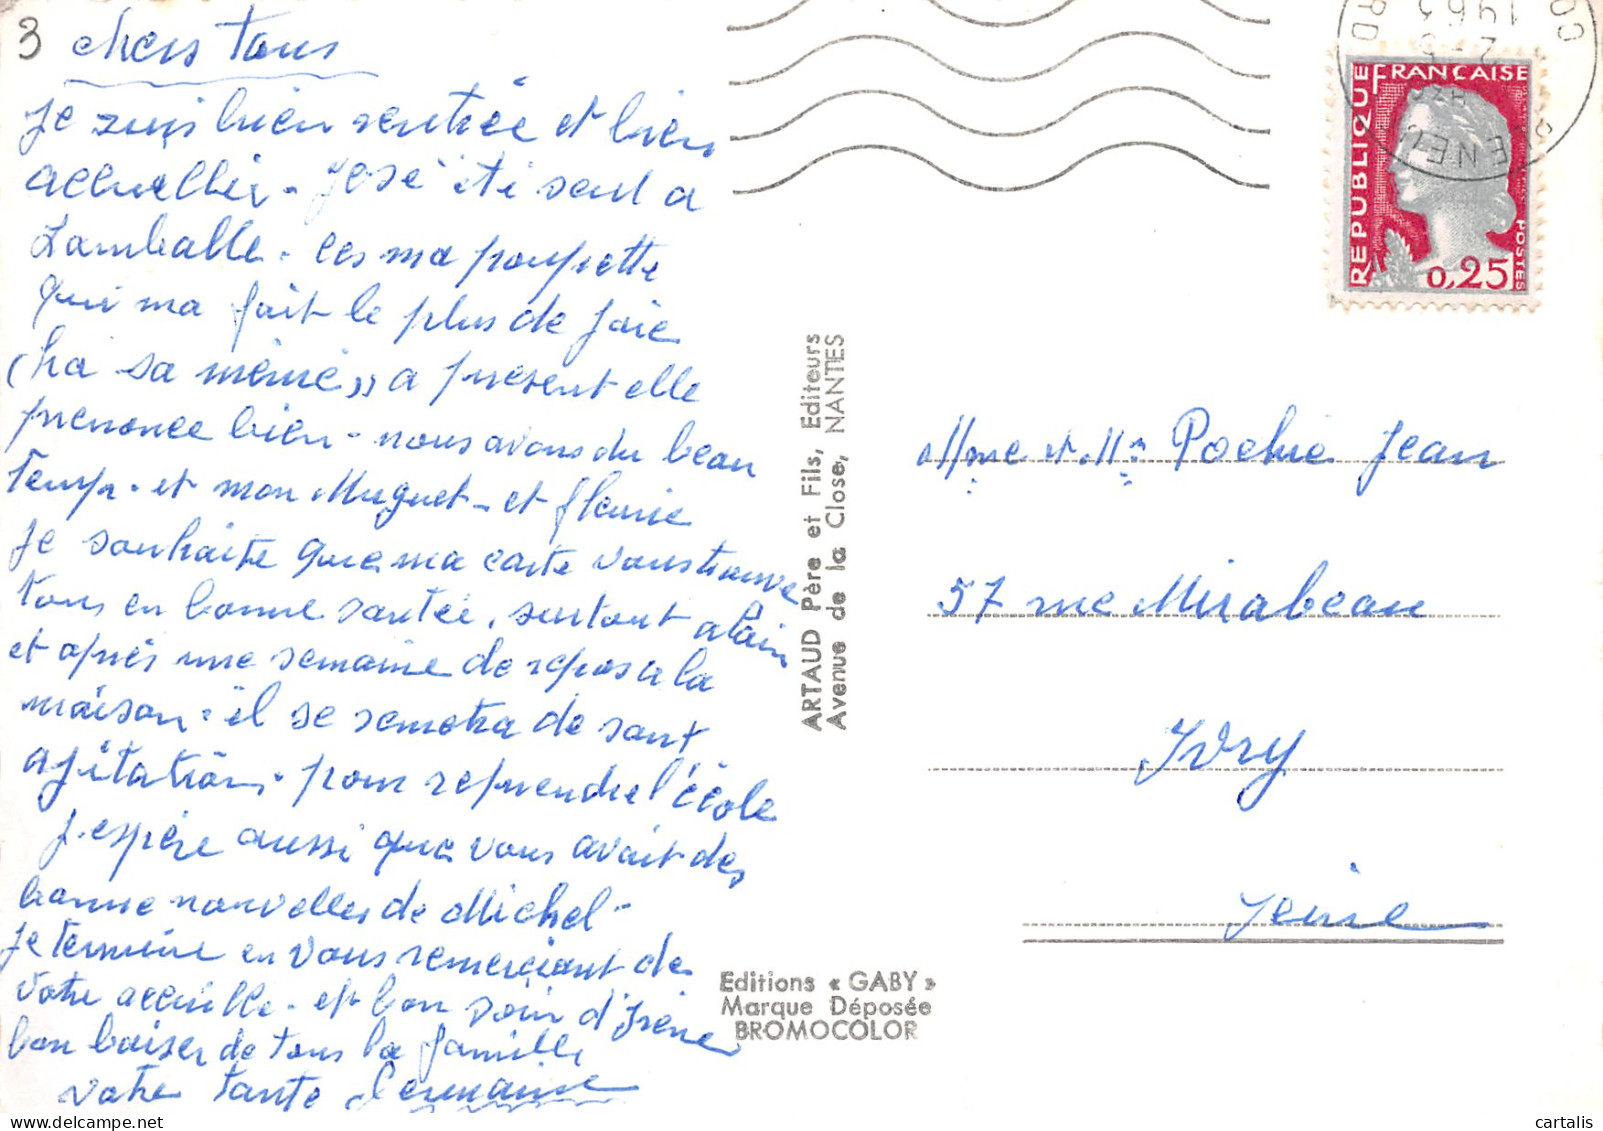 3 chers tous
Je suis bien rentrée et bien
accuellier - José été seul a
Lamballe. ces ma poupette
qui ma fait le plus de joie
(ha sa mémé,, a présent elle
prenonce bien - nous avons du beau
temp. et mon Muguet - et fleurie
Je souhaite que ma carte vous trouve
tous en bonne santée, surtout alain
et après une semaine de repos a la
maison. il se remetra de sont
agitation. pour reprendre l'école
J.espère aussi que vous avait des
bonne nouvelles de Michel -
Je termine en vous remerciant de
votre accuille - et bon soir d'Irène
bon baiser de tous la famille
votre tante Germaine
ARTAUD Père et Fils, Editeurs
Avenue de la Close, NANTES
Editions « GABY »
Marque Déposée
BROMOCOLOR
RÉPUBLIQUE FRANÇAISE
POSTES
0,25
1963
Mme et Mr Pochie Jean
57 rue Mirabeau
Ivry
Seine
cartalis